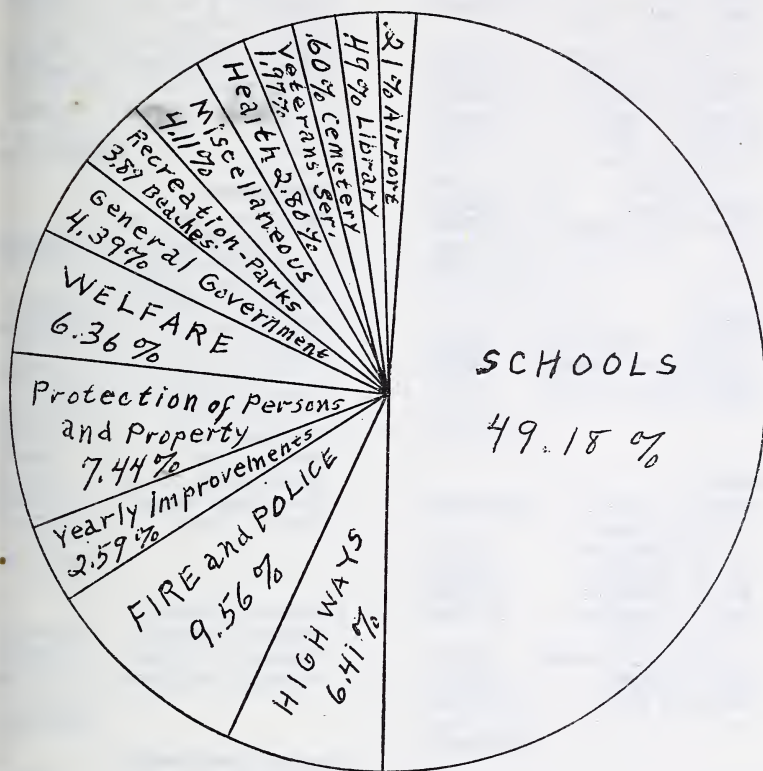 .21% Airport
.49% Library
.60% Cemetery
Veterans' Ser.
1.97%
Health 2.80%
Miscellaneous
4.11%
Recreation-Parks
3.89 Beaches
General Government
4.39%
WELFARE
6.36 %
Protection of Persons
and Property
7.44%
Yearly Improvements
2.59%
FIRE and POLICE
9.56 %
HIGHWAYS
6.41%
SCHOOLS
49.18 %